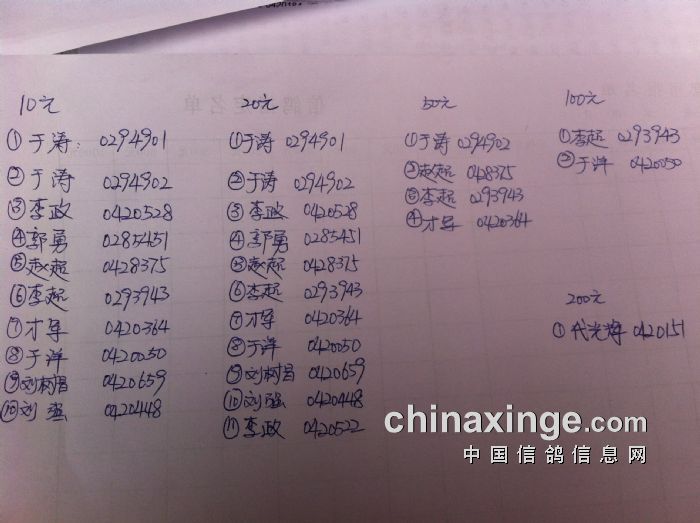 10元
①于涛: 0294901
②于涛 0294902
③李政 0420528
④郭勇 0285451
⑤赵超 0428375
⑥李超 0293943
⑦才军 0420364
⑧于洋 0420050
⑨刘树昌 0420659
⑩刘强 0420448
20元
①于涛 0294901
②于涛 0294902
③李政 0420528
④郭勇 0285451
⑤赵超 0428375
⑥李超 0293943
⑦才军 0420364
⑧于洋 0420050
⑨刘树昌 0420659
⑩刘强 0420448
⑪李政 0420522
50元
①于涛 0294902
②赵超 0428375
③李超 0293943
④才军 0420364
100元
①李超 0293943
②于洋 0420050
200元
①代光辉 0420151
chinaxinge.com
中国信鸽信息网